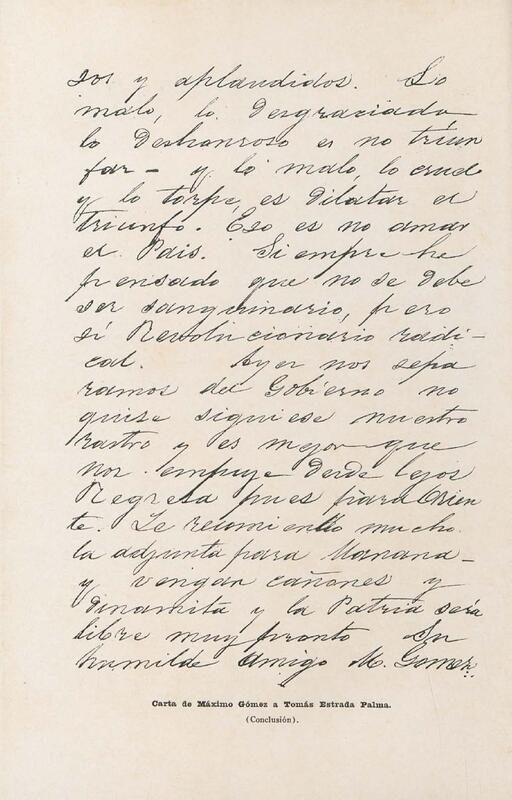 sos y aplaudidos. Lo
malo, lo desgraciado
lo deshonroso es no triun
far - y lo malo, lo cruel
y lo torpe, es dilatar el
triunfo. Eso es no amar
el Pais. Siempre he
pensado que no se debe
ser sanguinario, pero
sí Revolucionario radi-
cal. Ayer nos sepa
ramos del Gobierno no
quise siguiese nuestro
rastro y es mejor que
nos empuje desde lejos
Regresa pues para Orien
te. Le recomiendo mucho
la adjunta para Manana -
y vengan cañones y
dinamita y la Patria será
libre muy pronto Su
humilde amigo M. Gomez
Carta de Máximo Gómez a Tomás Estrada Palma.
(Conclusión).